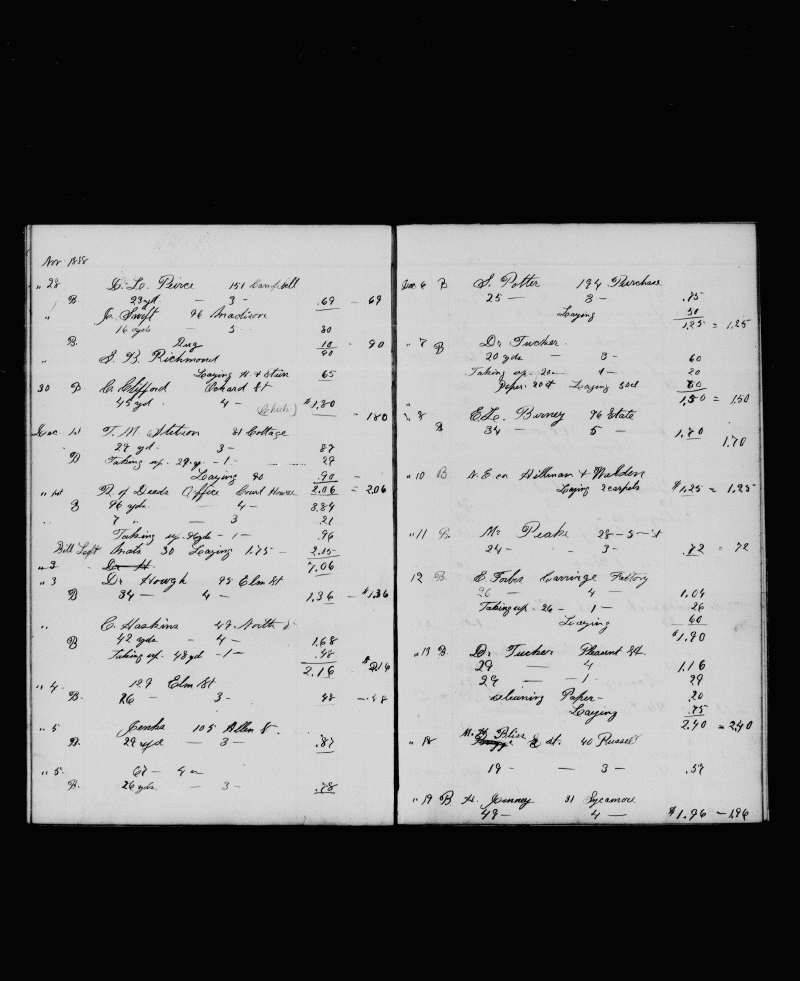 Nov 1888
" 28 Peirce 151 Campbell
B. 23 yd. — 3 — .69 — 69
" Swift 96 Madison
16 yds — 5 80
B. Rug 10 — 90
90
" S. B. Richmond
Laying H. & Stair 65
30 B. C. Clifford Orchard St
45 yd. 4 — $1.80
(Check) — 180
Dec 1st T. M. Stetson 81 Cottage
29 yd. 3 — 87
B Taking up. 29. y. — 1 — 29
Laying 90 .90 —
" 1st R. of Deeds Office Court House 2.06 = 2.06
B 96 yds. — 4 — 3.84
7 " — 3 21
Taking up. 96 yds — 1 — .96
Bill Left Mats 30 Laying 1.75 — 2.05
" 3 Dr H. 7.06
" 3 Dr Hough 95 Elm St
B 34 — 4 — 1.36 — $1.36
" C. Haskins 49 North
B 42 yds — 4 — 1.68
Taking up. 48 yd — 1 — .48
2.16 $216
" 4 — 129 Elm St
B. 26 — 3 — 
" 5 Jenks 105 Allen St.
B. 29 yds — 3 — .87
" 5 67 —
B. 26 yds — 3 — .78
Dec 6 B S. Potter 194 Purchase
25 — 3 — .75
Laying 50
1.25 = 1.25
" 7 B Dr Tucker
20 yds — 3 — 60
Taking up. 20 — 1 — 20
Paper. 20 ¢ Laying 50 ct
1.50 = 1.50
" 8 Burney 96 State
B 34 — 5 — 1.70
1.70
" 10 B Hillman & Walden
Laying 2 carpets $1.25 = 1.25
" 11 B. Mr Peaks 28 — 5 — St
24 — — 3 — .72 = 72
12 B. E. Forbes Carriage Factory
26 — 4 — 1.04
Taking up. 26 — 1 — 26
Laying 60
$1.90
" 13 B Dr. Tucker Pleasant St.
29 — 4 1.16
29 — — 1 29
Cleaning Paper — .20
Laying .75
2.40 = 2.40
" 18 Bliss St. 40 Russell
19 — — 3 — .57
" 19 B H. Jenney 81 Sycamore
49 — 4 — $1.96 — 1.96